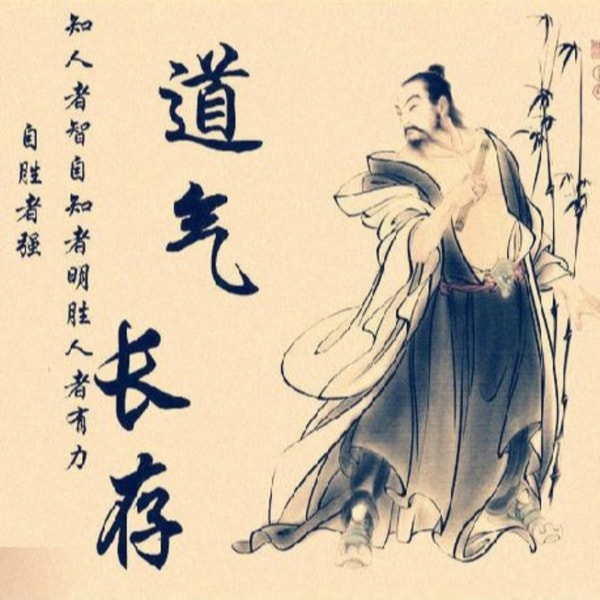 道气长存
知人者智自知者明胜人者有力
自胜者强